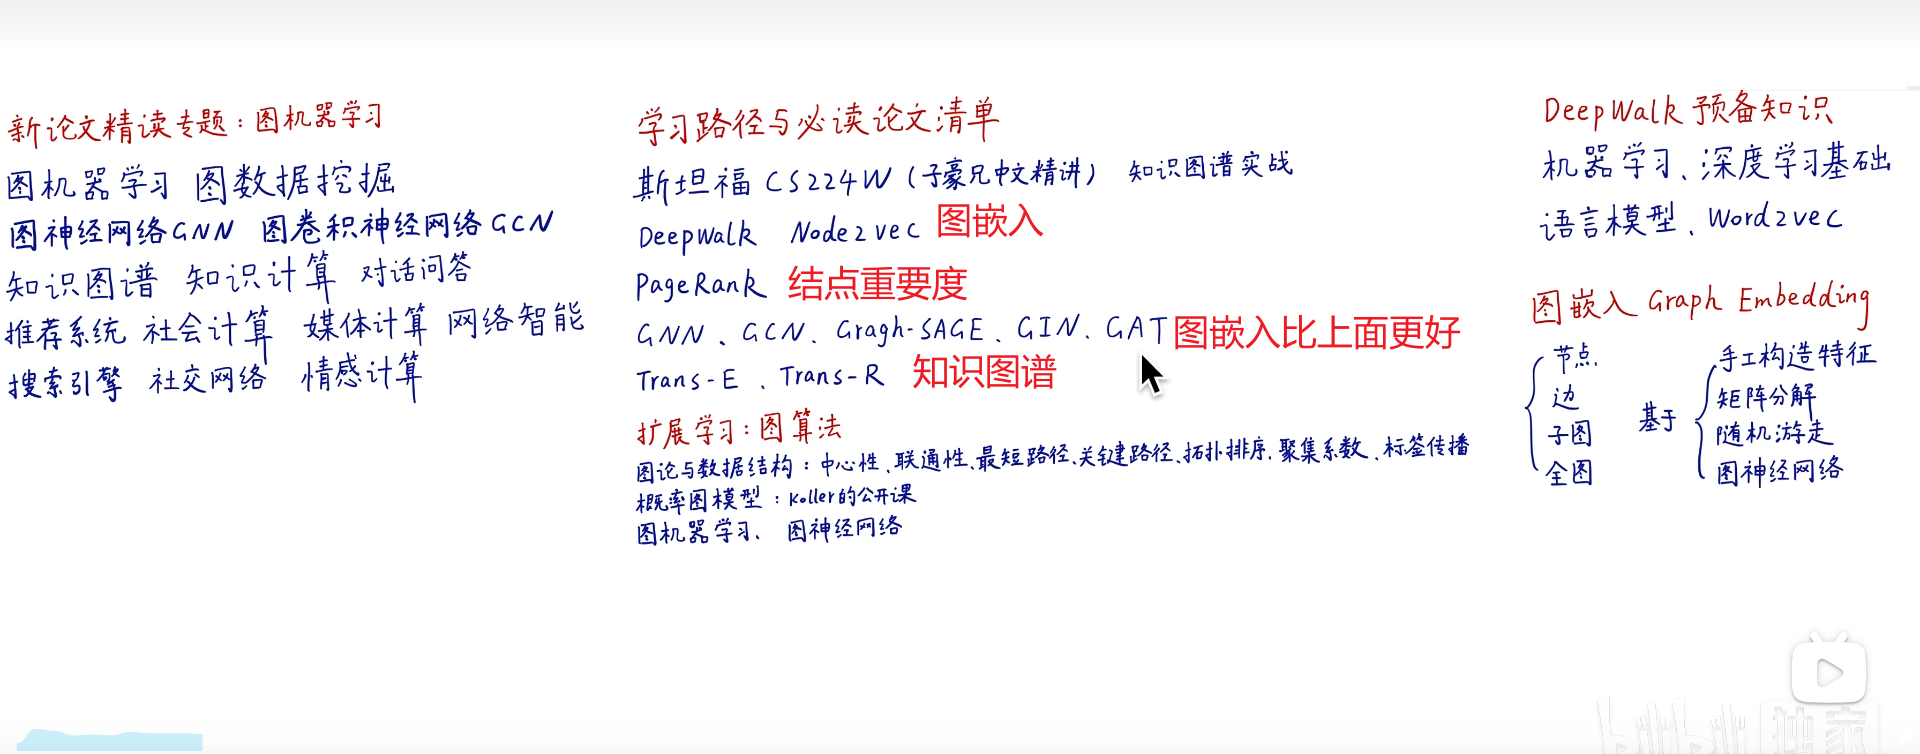 新论文精读专题：图机器学习
图机器学习 图数据挖掘
图神经网络GNN 图卷积神经网络GCN
知识图谱 知识计算 对话问答
推荐系统 社会计算 媒体计算 网络智能
搜索引擎 社交网络 情感计算
学习路径与必读论文清单
斯坦福CS224W（子豪兄中文精讲） 知识图谱实战
DeepWalk Node2vec 图嵌入
PageRank 结点重要度
GNN、GCN、Gragh-SAGE、GIN、GAT 图嵌入比上面更好
Trans-E、Trans-R 知识图谱
扩展学习：图算法
图论与数据结构：中心性、联通性、最短路径、关键路径、拓扑排序、聚集系数、标签传播
概率图模型：Koller的公开课
图机器学习、图神经网络
DeepWalk预备知识
机器学习、深度学习基础
语言模型、Word2vec
图嵌入 Graph Embedding
节点
边
子图
全图
基于
手工构造特征
矩阵分解
随机游走
图神经网络
bilibili 独家